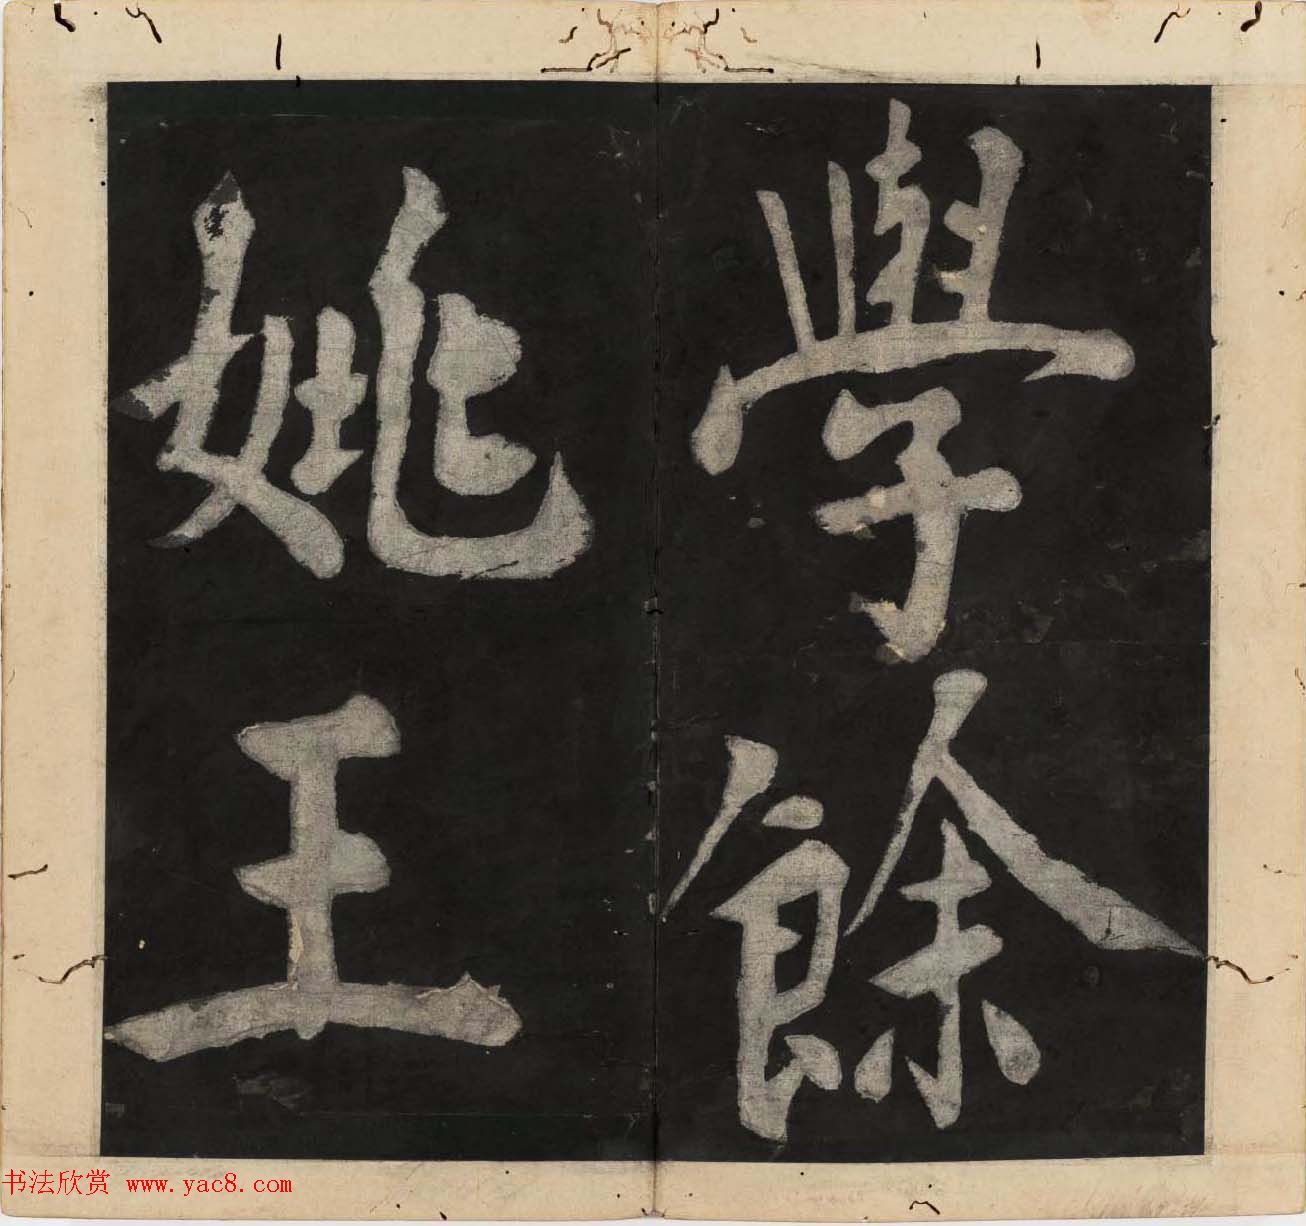 學餘
姚王
书法欣赏 www.yac8.com